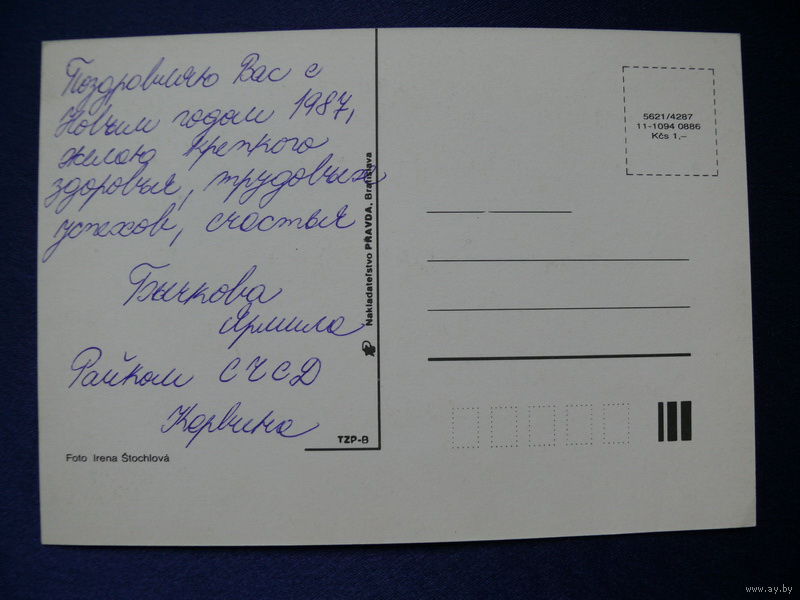 Поздравляю Вас с
Новым годом 1987,
желаю крепкого
здоровья, трудовых
успехов, счастья
Бычкова
Ярмила
Райком СЧСД
Карвина
Foto Irena Štochlová
TZP-8
Nakladateľstvo PRAVDA, Bratislava
5621/4287
11-1094 0886
Kčs 1,–
www.ay.by